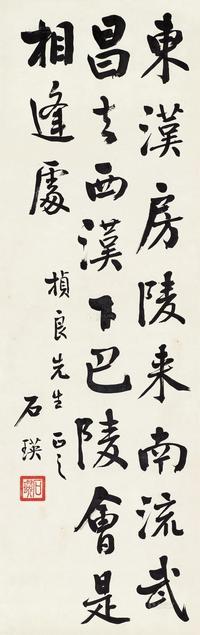 東漢房陵来南流武
昌去西漢下巴陵會是
相逢處
楨良先生正之
石瑛